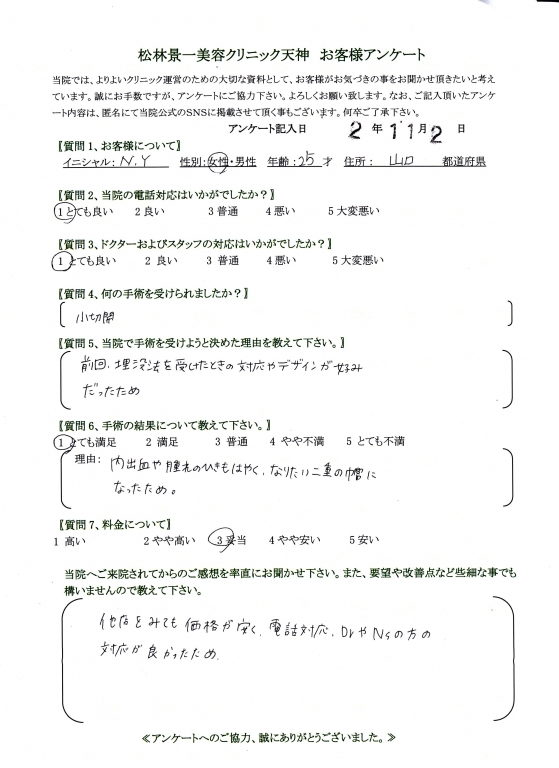 松林景一美容クリニック天神 お客様アンケート
当院では、よりよいクリニック運営のための大切な資料として、お客様がお気づきの事をお聞かせ頂きたいと考え
ています。誠にお手数ですが、アンケートにご協力下さい。よろしくお願い致します。なお、ご記入頂いたアンケ
ート内容は、匿名にて当院公式のSNSに掲載させて頂く事もございます。何卒ご了承下さい。
アンケート記入日 2 年 11 月 2 日
〖質問1、お客様について〗
イニシャル: N.Y 性別:女性・男性 年齢: 25 才 住所: 山口 都道府県
〖質問2、当院の電話対応はいかがでしたか?〗
1 とても良い 2 良い 3 普通 4 悪い 5 大変悪い
〖質問3、ドクターおよびスタッフの対応はいかがでしたか?〗
1 とても良い 2 良い 3 普通 4 悪い 5 大変悪い
〖質問4、何の手術を受けられましたか?〗
小切開
〖質問5、当院で手術を受けようと決めた理由を教えて下さい。〗
前回、埋没法を受けたときの対応やデザインが好み
だったため
〖質問6、手術の結果について教えて下さい。〗
1 とても満足 2 満足 3 普通 4 やや不満 5 とても不満
理由: 内出血や腫れのひきもはやく、なりたい二重の幅に
なったため。
〖質問7、料金について〗
1 高い 2 やや高い 3 妥当 4 やや安い 5 安い
当院へご来院されてからのご感想を率直にお聞かせ下さい。また、要望や改善点など些細な事でも
構いませんので教えて下さい。
他店をみても価格が安く、電話対応、DrやNsの方の
対応が良かったため.
≪アンケートへのご協力、誠にありがとうございました。≫